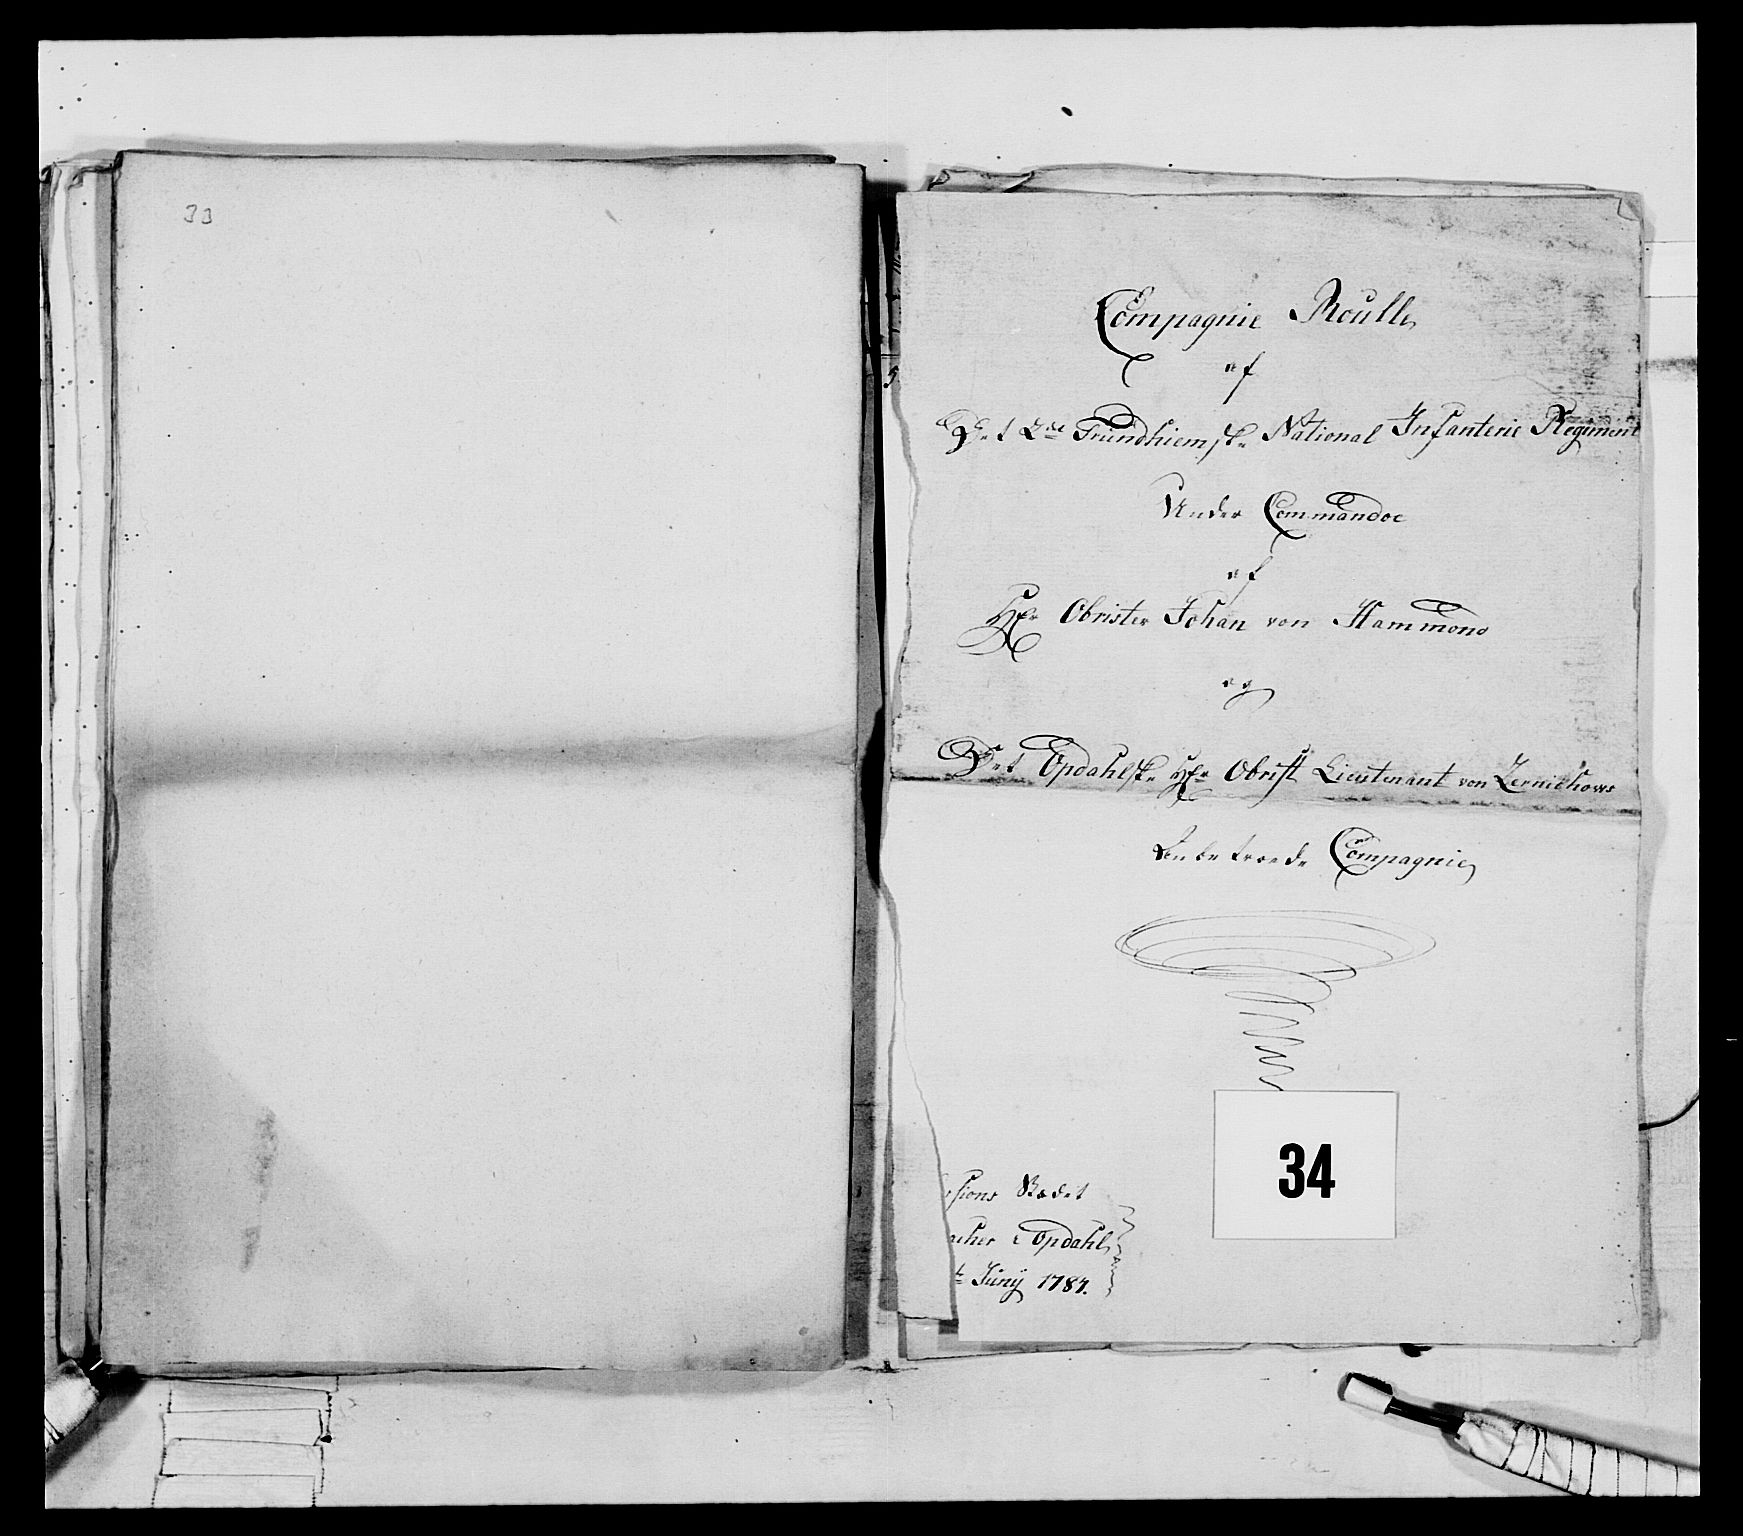 33
Compagnie Roulle
af
Det 2de Trundhiemske National Infanterie Regiment
Under Commandoe
af
Hr Obrister Johan von Hammond
og
Det Opdahlske Hr Obrist Lieutenant von Zernichows
Anbetroede Compagnie
sions Stædet
acher i Opdahl
t Juny 1787.
34